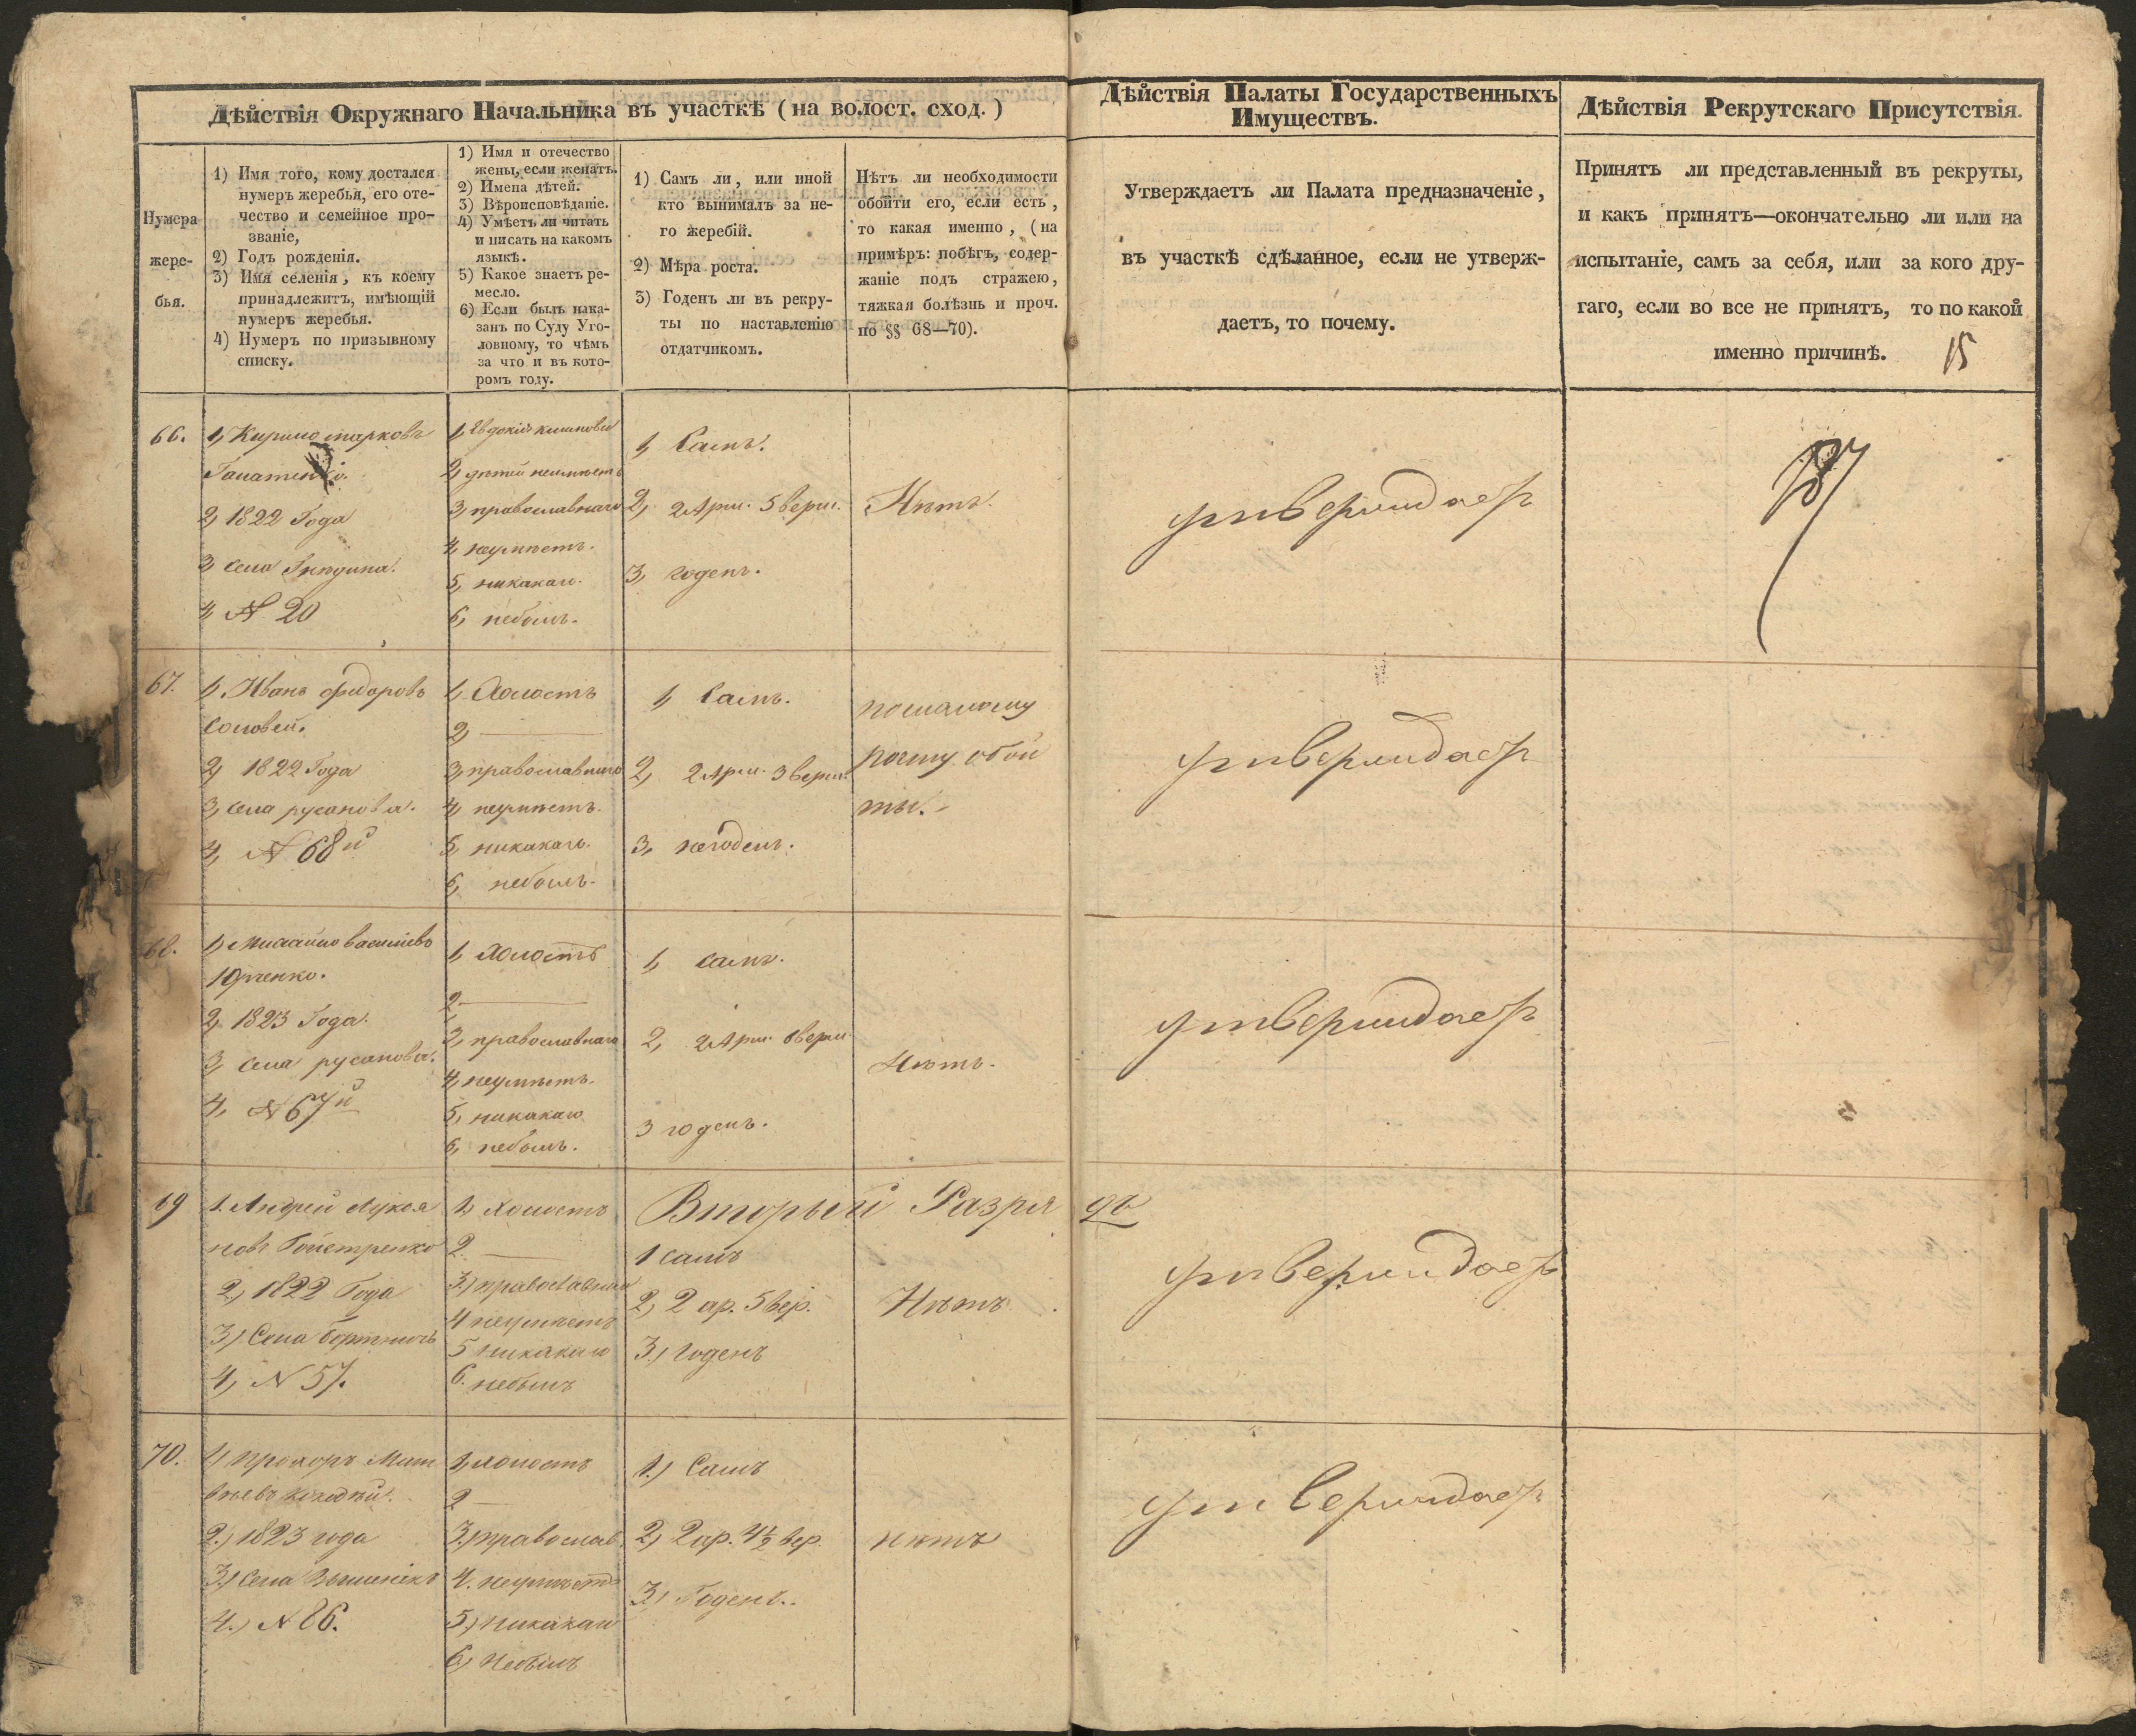 Дѣйствія Окружнаго Начальника въ участкѣ (на волост. сход.)
Нумера
жере-
бья.
1) Имя того, кому достался
нумеръ жеребья, его оте-
чество и семейное про-
званіе,
2) Годъ рожденія.
3) Имя селенія, къ коему
принадлежитъ, имѣющій
нумеръ жеребья.
4) Нумеръ по призывному
списку.
1) Имя и отечество
жены, если женатъ.
2) Имена дѣтей.
3) Вѣроисповѣданіе.
4) Умѣетъ ли читать
и писать на какомъ
языкѣ.
5) Какое знаетъ ре-
месло.
6) Если былъ нака-
занъ по Суду Уго-
ловному, то чѣмъ
за что и въ кото-
ромъ году.
1) Самъ ли, или иной
кто вынималъ за не-
го жеребій.
2) Мѣра роста.
3) Годенъ ли въ рекру-
ты по наставленію
отдатчикомъ.
Нѣтъ ли необходимости
обойти его, если есть,
то какая именно, (на
примѣръ: побѣгъ, содер-
жаніе подъ стражею,
тяжкая болѣзнь и проч.
по §§ 68—70).
Дѣйствія Палаты Государственныхъ
Имуществъ.
Утверждаетъ ли Палата предназначеніе,
въ участкѣ сдѣланное, если не утверж-
даетъ, то почему.
Дѣйствія Рекрутскаго Присутствія.
Принятъ ли представленный въ рекруты,
и какъ принятъ—окончательно ли или на
испытаніе, самъ за себя, или за кого дру-
гаго, если во все не принятъ, то по какой
именно причинѣ.
15
66.
1, Кирило марковъ
2, 1822 Года
3, села Гнѣдина.
4, N 20
2, дѣтей неимѣетъ
3, православнаго
4, неумѣетъ.
5, никакаго.
6, небылъ.
1, Самъ.
2, 2 Арш. 5 верш.
3, годенъ.
Нѣтъ.
утверждаетъ
67.
1, Иванъ федоровъ
Соловей.
2, 1822 Года
3, села русанова.
4, N 68й
1, Холостъ
2,
3, православнаго
4, неумѣетъ.
5, никакаго.
6, небылъ.
1, Самъ.
2, 2 Арш. 3 верш.
3, негоденъ.
помалому
росту обой
ты.
утверждаетъ
68.
1, Михайло василіевъ
Юрченко.
2, 1823 Года.
3, села русанова.
4, N 67й
1, Холостъ
2,
3, православнаго
4, неумѣетъ.
5, никакаго
6, небылъ.
1, самъ.
2, 2 Арш. 6 верш
3 годенъ.
Нѣтъ.
утверждаетъ
Вторый Разрядъ
1. Андрей Лукоя
новъ
2, 1822 Года
3, Села Бортничъ
4, N 57.
1, Холостъ
2.
3, православнаго
4 неумѣетъ
5 никакаго
6. небылъ
1 самъ
2, 2 ар. 5 вер.
3, годенъ
Нѣтъ
утверждаетъ
70.
1, Прохоръ Мат
вѣевъ
2, 1823 года
3, Села Вишенекъ
4, N 86.
1, холостъ
2
3, православ.
4. неумѣетъ
5, никакаго
6, Небылъ
1, Самъ
2, 2 ар. 4½ вер.
3, Годенъ.
нѣтъ
утверждаетъ